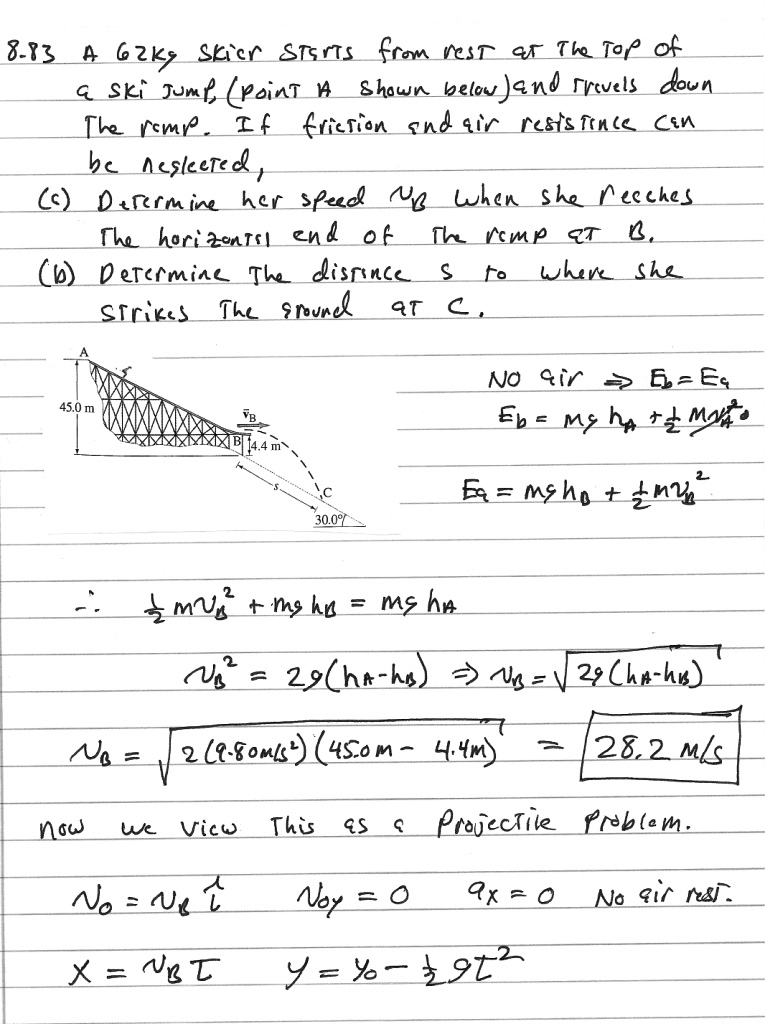 8-83 A 62kg skier starts from rest at the top of
a ski jump, (point A shown below) and travels down
the ramp. If friction and air resistance can
be neglected,
(a) Determine her speed v_B when she reaches
the horizontal end of the ramp at B.
(b) Determine the distance s to where she
strikes the ground at C.
A
45.0 m
v⃗_B
B
4.4 m
s
C
30.0°
No air ⇒ E_b = E_a
E_b = mg h_A + ½ m v_A² 0
E_a = mg h_B + ½ m v_B²
∴ ½ m v_B² + mg h_B = mg h_A
v_B² = 2g(h_A - h_B) ⇒ v_B = √2g(h_A - h_B)
v_B = √2(9.80 m/s²)(45.0m - 4.4m) = 28.2 m/s
now we view this as a projectile problem.
v_0 = v_B î v_0y = 0 a_x = 0 No air rest.
x = v_B t y = y_0 - ½ g t²